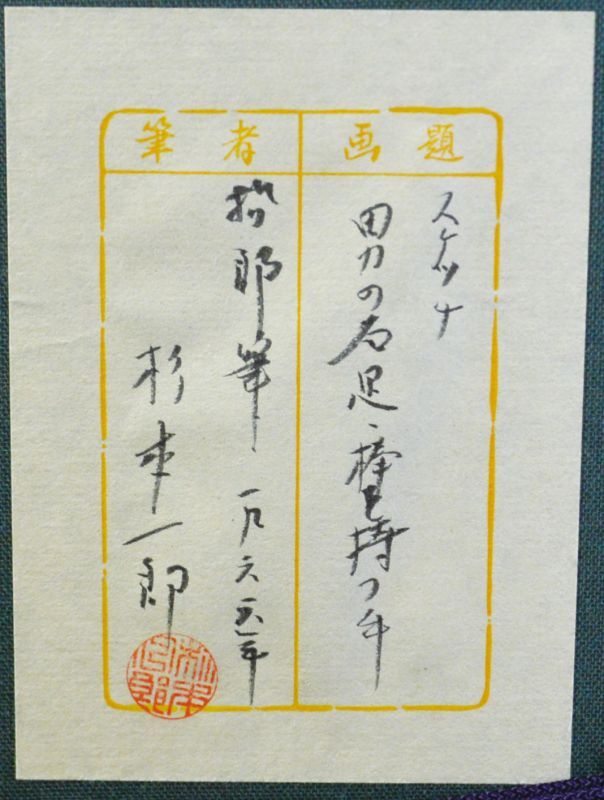 画題
スケッチ
男の右足、棒を持つ手
筆者
筆、一九六五年
杉本一郎